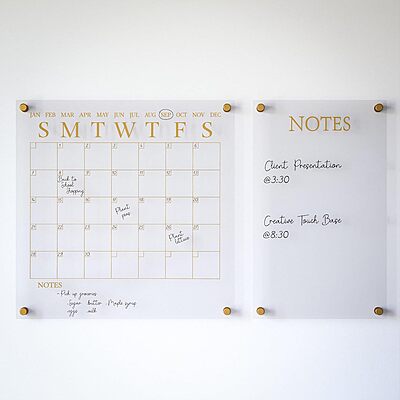 JAN FEB MAR APR MAY JUN JUL AUG SEP OCT NOV DEC
S M T W T F S
Back to
School
Shopping
Plant
peas
Plant
lettuce
NOTES
- Pick up groceries
Sugar butter - Maple syrup
eggs milk
NOTES
Client Presentation
@3:30
Creative Touch Base
@8:30